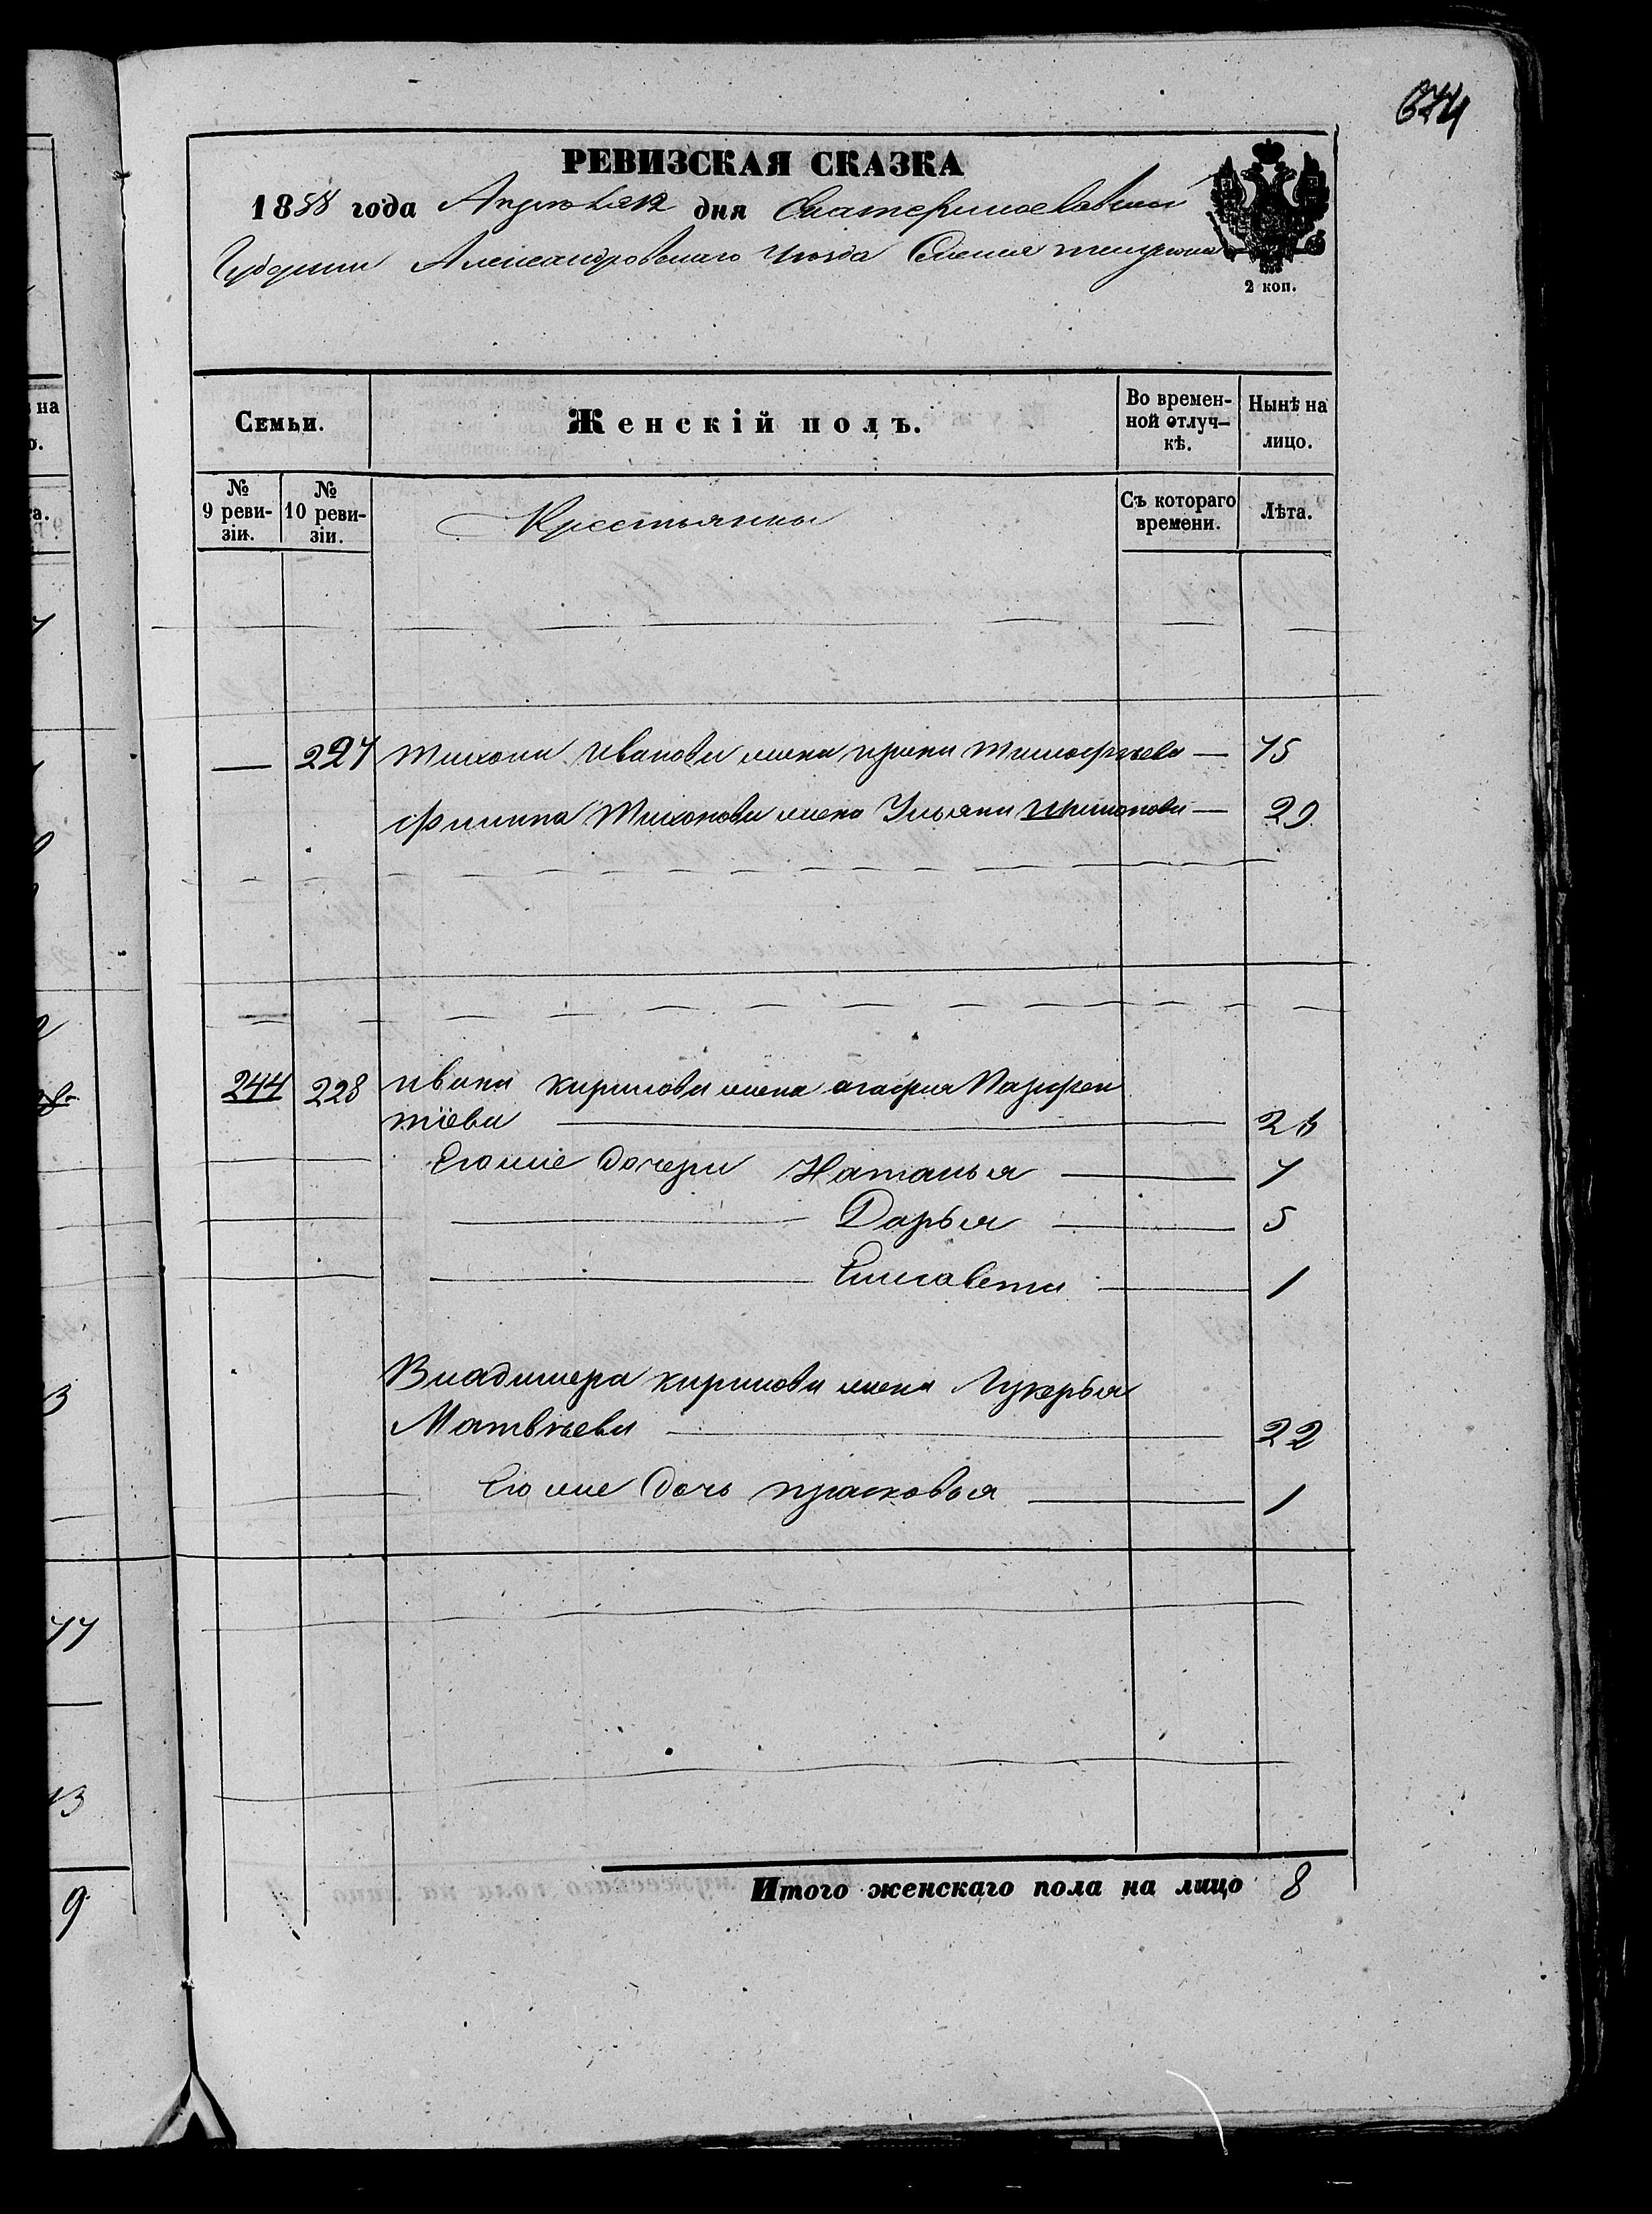 674
РЕВИЗСКАЯ СКАЗКА
1858 года Апреля дня Екатеринославской
Губернии Александровскаго Уезда Селения
2 коп.
на
Семьи.
Женскій полъ.
Во времен-
ной отлуч-
кѣ.
Нынѣ на
лицо.
№
9 реви-
зіи.
№
10 реви-
зіи.
Крестьянки
Съ котораго
времени.
Лѣта.
— 227 Тихона Иванова жена ирина Тимофѣева — 75
Филипа Тихонова жена Ульяна — 29
244 228 ивана кирилова жена агафия Парфен
тіева 26
Егоже дочери Наталья 7
Дарья 5
Елисавета 1
Владимера кирилова жена Лукерья
Матвѣева 22
Его же дочь прасковья 1
Итого женскаго пола на лицо 8
77
13
9